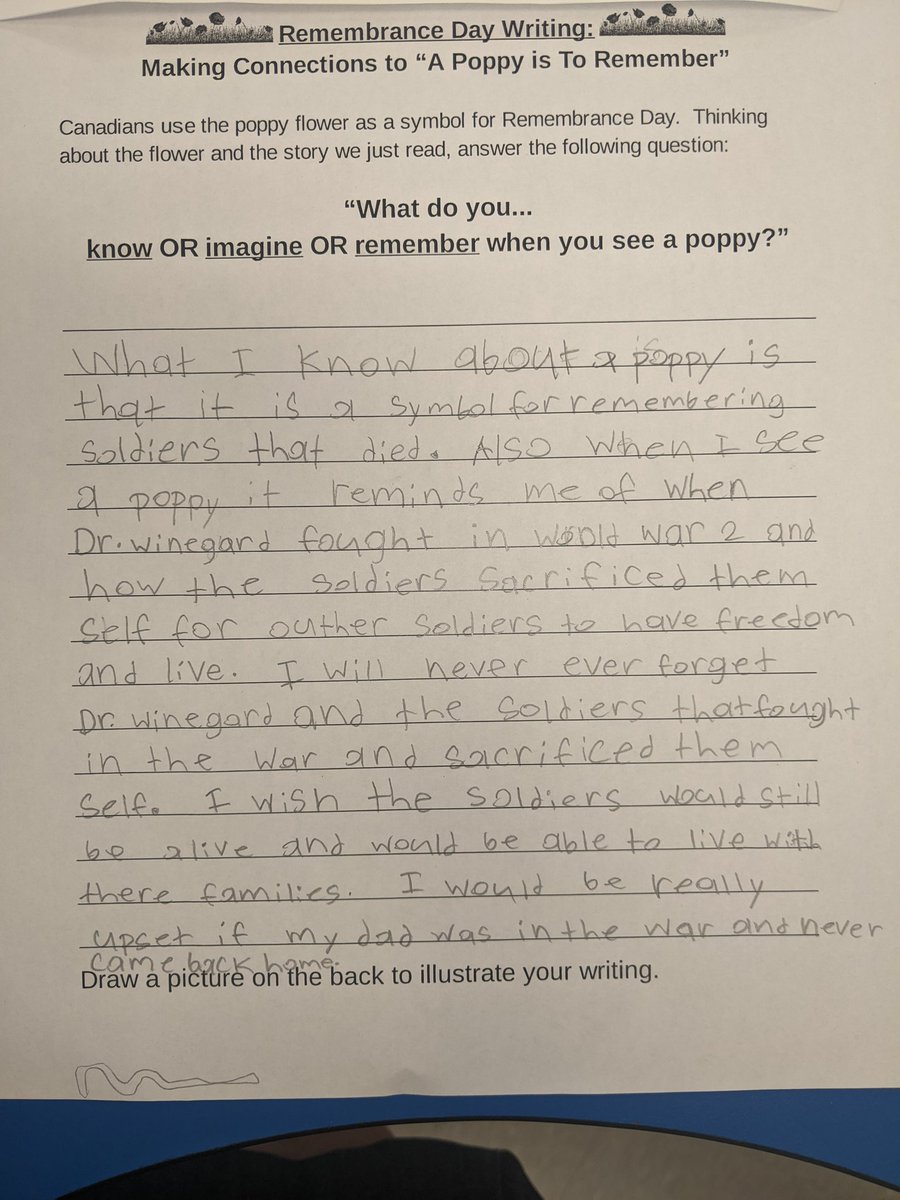 Remembrance Day Writing:
Making Connections to “A Poppy is To Remember”
Canadians use the poppy flower as a symbol for Remembrance Day. Thinking
about the flower and the story we just read, answer the following question:
“What do you...
know OR imagine OR remember when you see a poppy?”
What I know about a poppy is
that it is a symbol for remembering
soldiers that died. Also when I see
a poppy it reminds me of when
Dr. winegard fought in world war 2 and
how the soldiers sacrificed them
self for outher soldiers to have freedom
and live. I will never ever forget
Dr. winegard and the soldiers that fought
in the war and sacrificed them
self. I wish the soldiers would still
be alive and would be able to live with
there families. I would be really
upset if my dad was in the war and never
came back home.
Draw a picture on the back to illustrate your writing.